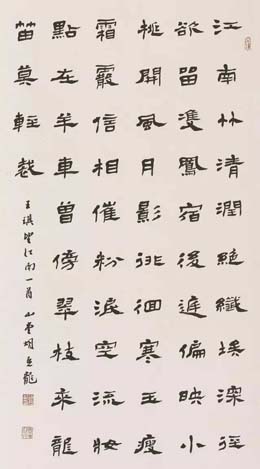 江南竹清潤絕纖埃深徑
欲留雙鳳宿後庭偏映小
桃開風月影徘徊寒玉瘦
霜霰信相催粉淚空流妝
點在羊車曾傍翠枝來龍
笛莫輕裁
王琪望江南一首